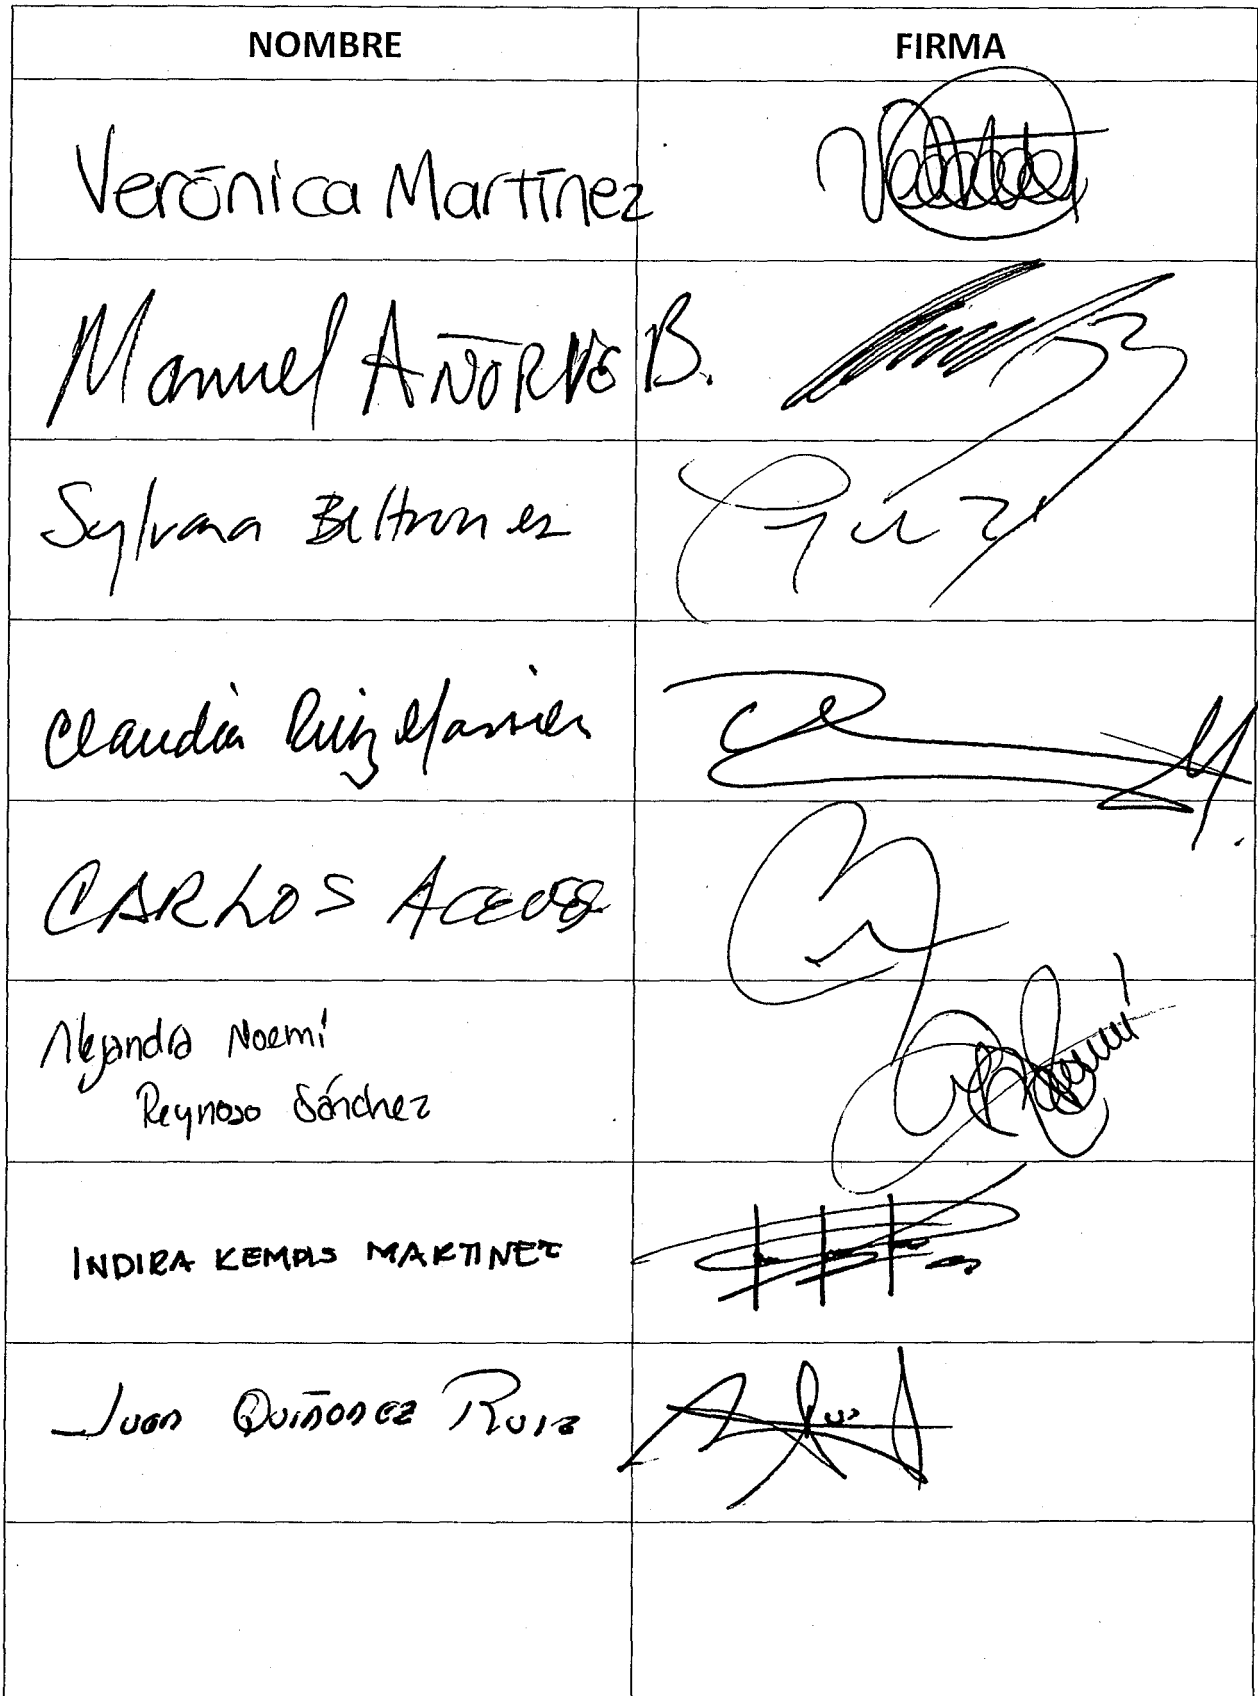 NOMBRE FIRMA
Verónica Martínez
Manuel AÑORVE B.
Sylvana Beltrones
Claudia Ruiz Massieu
CARLOS ACEVES
Alejandra Noemí
Reynoso Sánchez
INDIRA KEMPIS MARTINEZ
Juan Quiñonez Ruiz